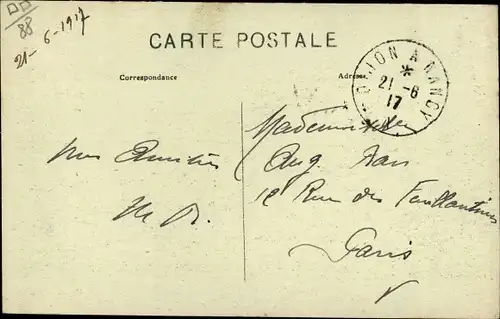 88
21-6-1917
CARTE POSTALE
Correspondance
Adresse
DIJON A NANCY
*
21 -6
17
Mademoiselle
Aug.
12 Rue des Feuillantines
Paris
Mes Amitiés
M R.